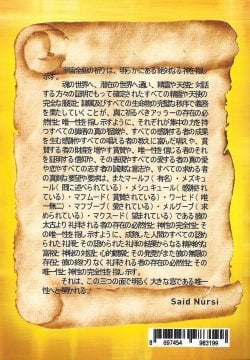 宇宙全服の祈りは、明らかにある絶対なる神を指し
示す。
魂の世界へ、潜在の世界へ遣い、精霊や天使と対話
する方々の証明でもって確認されたすべての精霊や天使の完
全なる服従と隷属及びすべての生命物の完璧な秩序で義務
を果たしていくことが、真に祈るべきアッラーの存在の必然性
と唯一性を指し示すように、それぞれが集中力を持
つすべての識者の真の智識や、すべての感謝する者の成果
を生む感謝やすべての唱える者の教えに富んだ唱えや、賞
賛する者の財産を増やす賞賛や、唯一性を信じる者のそれ
を証明する信仰や、その表現やすべての愛する者の真の愛
や恋やすべての志す者の誠実な意志や、すべての求める者
の真剣な要望や要求は、またマールフ（有名）・メズキュー
ル（既に述べられている）・メシュキュール（感謝され
ている）・マムドゥーフ（賛賛されている）・ワーヒド（唯
一無二）・マフブーブ（愛されている）・メルグーブ（求
められている）・マクスード（望まれている）である彼の
太古より礼拝される存在の必然性と神性の完全性と
唯一性を指し示すように、成熟した人間のすべての認め
られた礼拝とその認められた礼拝の結果からなる精神的な
富裕・神秘の対話・心的観察とその発見がまた彼の無限の
存在と彼の終わりなく礼拝される者の存在の必然性と、その
唯一性と神性の完全性を指し示す。
それは、この三つの面で明るく大きな窓である唯
一性へと開かれる。
Said Nursi
BARKOD
8 697454 983199